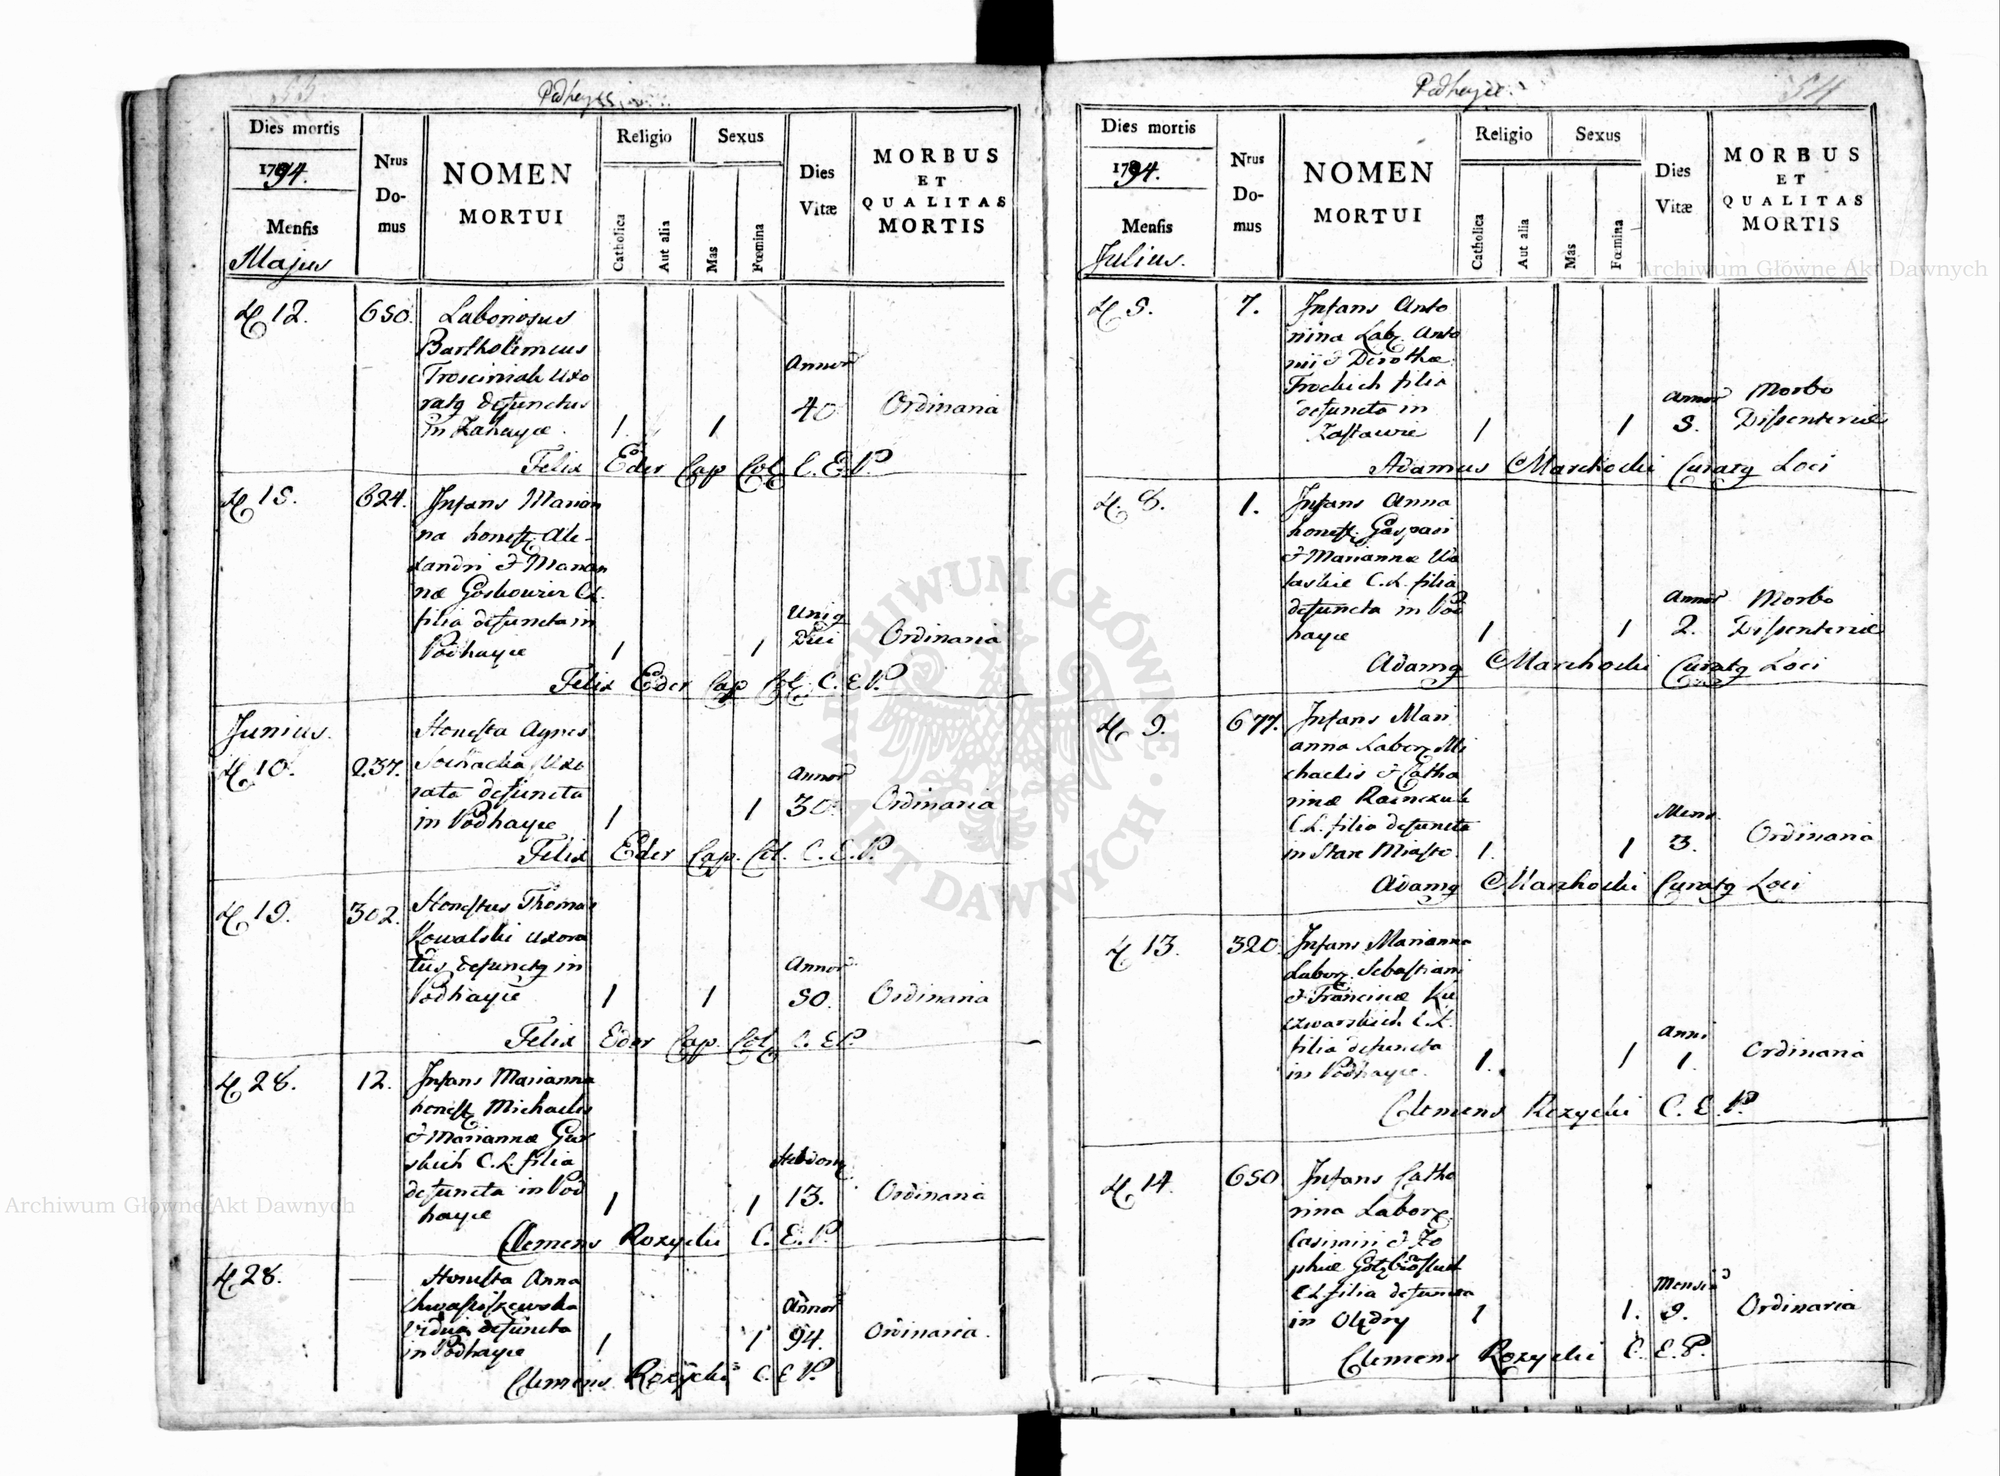 53
Podhayce
Dies mortis
1794.
Mensis
Majus
Nrus
Do-
mus
NOMEN
MORTUI
Religio
Catholica
Aut alia
Sexus
Mas
Fœmina
Dies
Vitæ
MORBUS
ET
QUALITAS
MORTIS
12. 650. Laboriosus
Bartholemeus
Trosciniak uxo
ratq defunctus
in Zahayce. 1. 1 Annor 40 Ordinaria
Felix Eder Cap Col C. E. P.
15. 624. Infans Marian
na honest Ale-
xandri & Marian
næ
filia defuncta in
Podhayce 1 1 Uniq
Diei Ordinaria
Felix Eder Cap Col C. E. P.
Junius.
10. 237. Honesta Agnes
uxo
rata defuncta
in Podhayce 1 1 Annor 30 Ordinaria
Felix Eder Cap. Col. C. E. P.
19. 302. Honestus Thomas
Kowalski uxora
tus defunctq in
Podhayce 1 1 Annor 50. Ordinaria
Felix Eder Cap. Col C. E P
28. 12. Infans Marianna
honest Michaelis
& Mariannæ Gur
skich C. L. filia
defuncta in Pod
hayce 1 1 Hebdom 13. Ordinaria
Clemens Rozycki C. E. P.
28. Honesta Anna
Vidua defuncta
in Podhayce 1 1 Annor 94. Ordinaria.
Clemens Rozycki C E P.
54
Podhayce
Dies mortis
1794.
Mensis
Julius.
Nrus
Do-
mus
NOMEN
MORTUI
Religio
Catholica
Aut alia
Sexus
Mas
Fœmina
Dies
Vitæ
MORBUS
ET
QUALITAS
MORTIS
5. 7. Infans Anto
nina Lab. Anto
nii & Dorothæ
filia
defuncta in
Zastawie 1 1 Annor 3. Morbo
Dissenteriæ
Adamus Marchocki Curatq Loci
8. 1. Infans Anna
honest. Gaspari
& Mariannæ Wo
laskie C. L. filia
defuncta in Pod
hayce 1 1 Annor 2. Morbo
Dissenteriæ
Adamq Marchocki Curatq Loci
9. 677. Infans Mari
anna Labor Mi
chaelis & Catha
rinæ
C. L. filia defuncta
in Stare Miasto. 1. 1 Mens. 3. Ordinaria
Adamq Marchocki Curatq Loci
13. 320. Infans Marianna
Labor. Sebastiani
& Francincæ
C. L.
filia defuncta
in Podhayce. 1. 1 Anni 1. Ordinaria
Clemens Rozycki C. E. P.
14. 650 Infans Catha
rina Labor
Casimiri & Zo
phiæ
C L filia defuncta
in Olędry 1 1. Mensiu 9. Ordinaria
Clemens Rozycki C. E. P.
ARCHIWUM GŁÓWNE AKT DAWNYCH
Archiwum Główne Akt Dawnych
Archiwum Główne Akt Dawnych